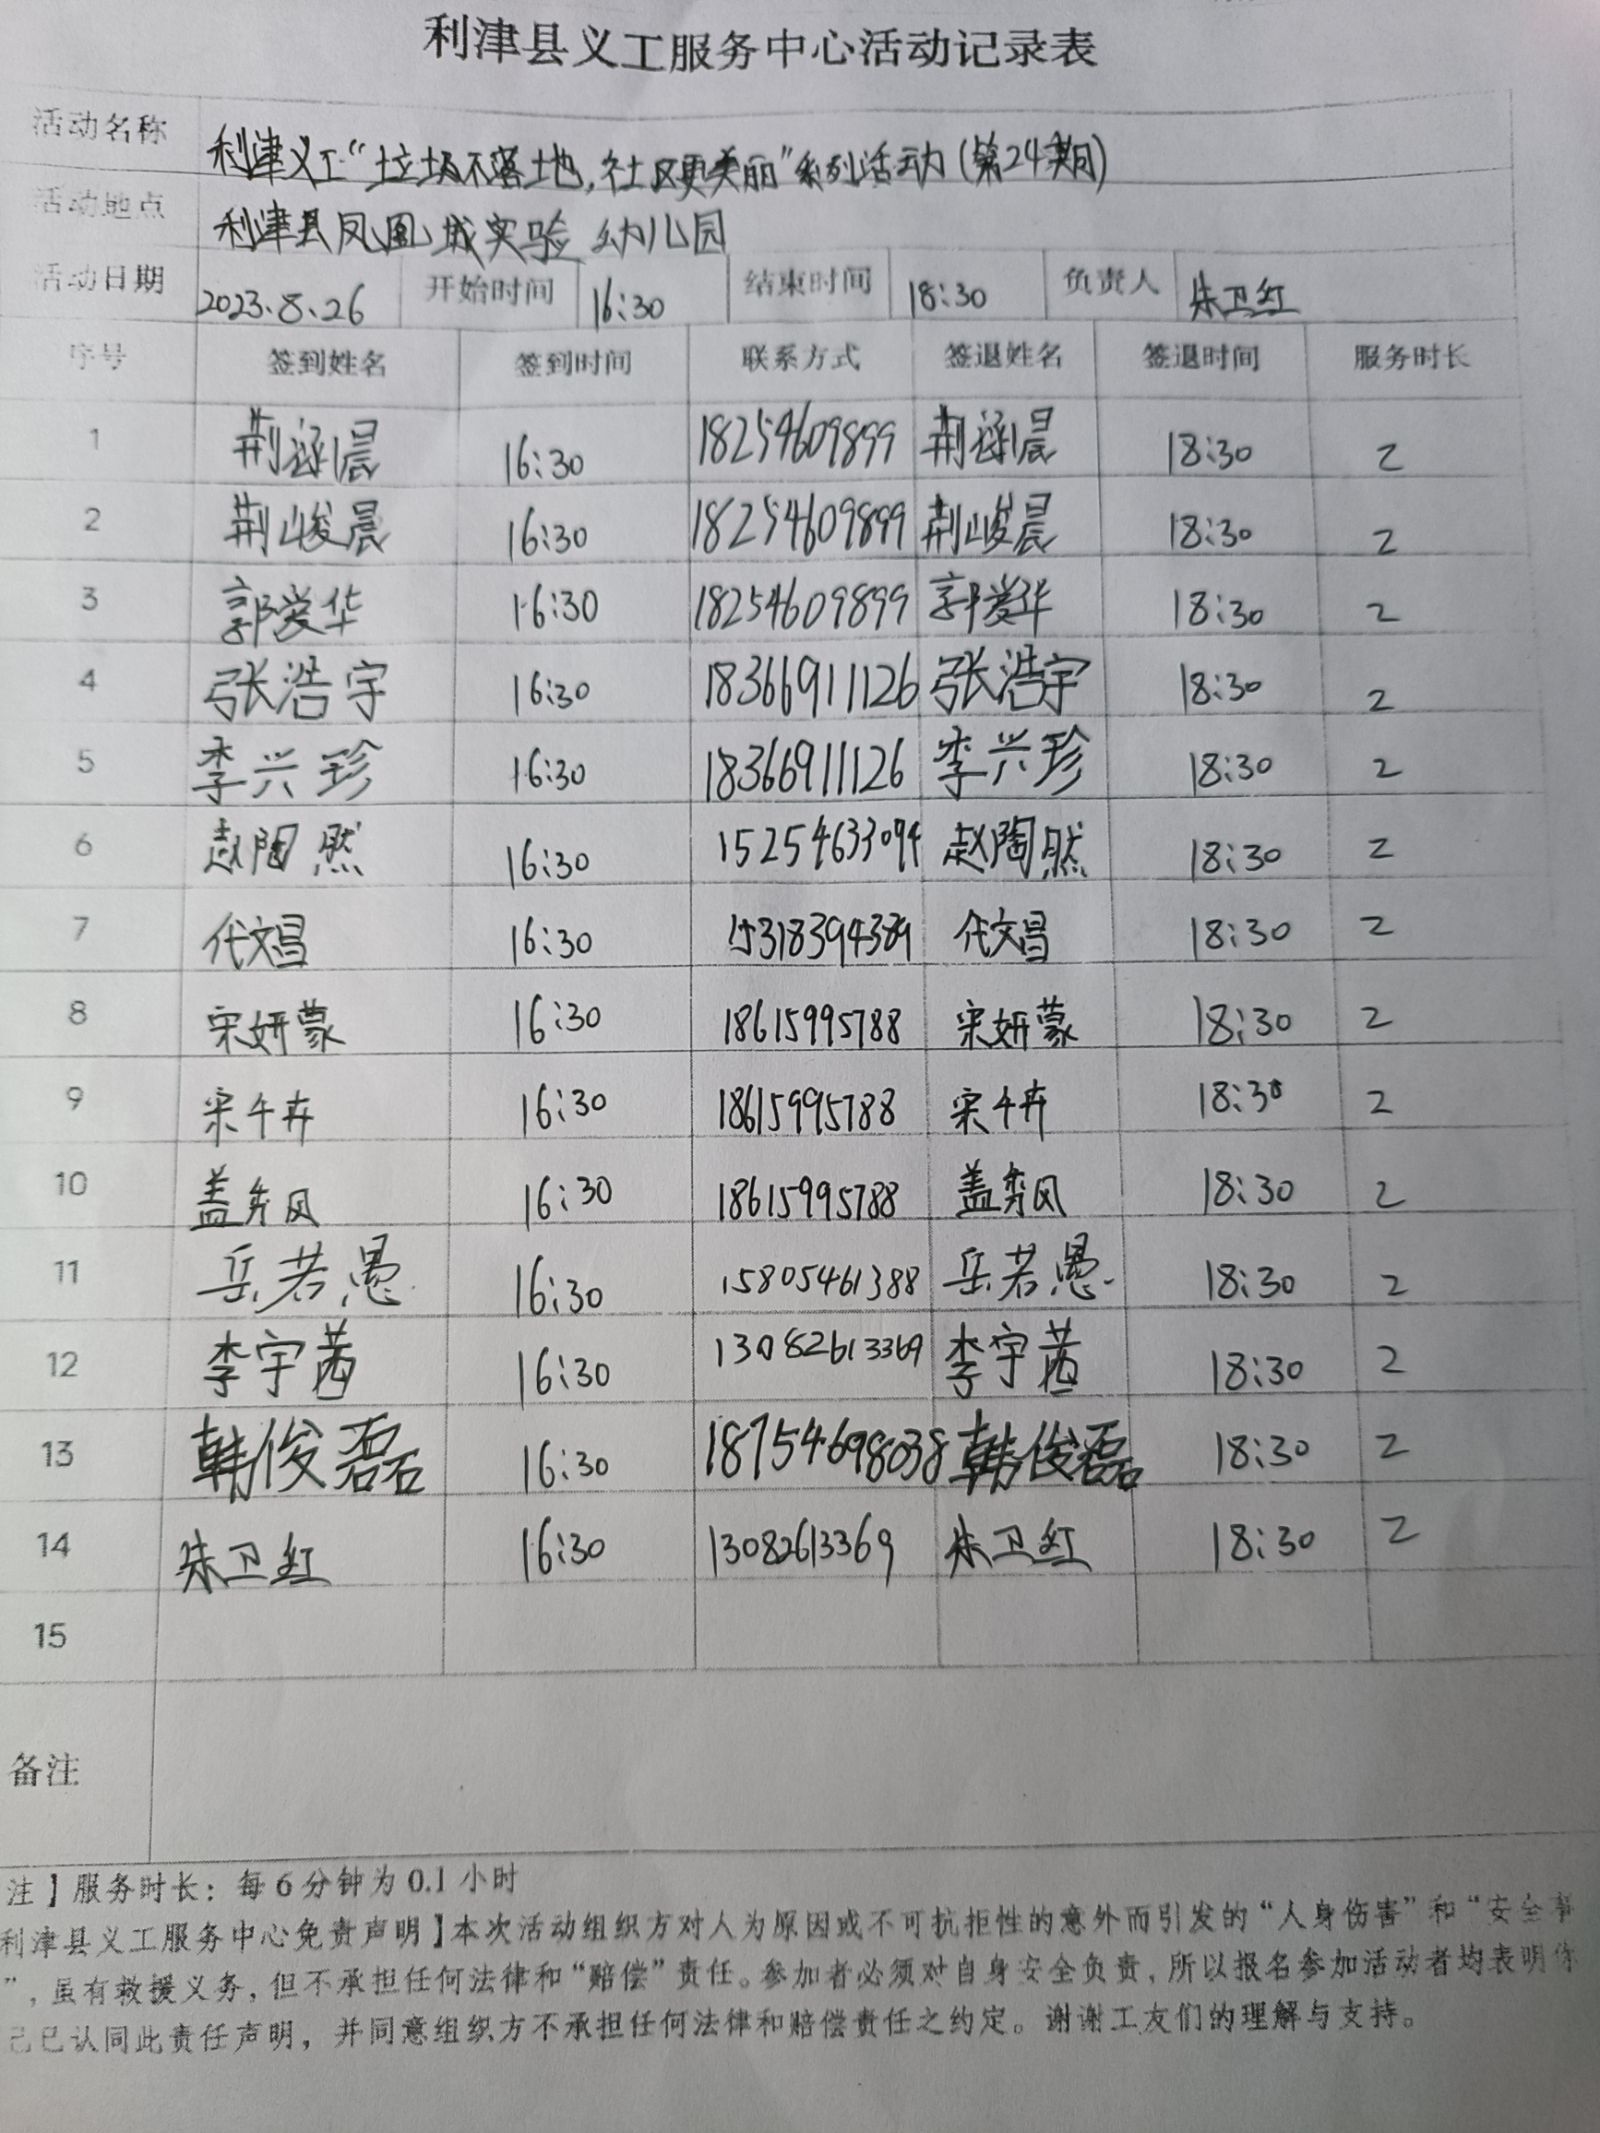 利津县义工服务中心活动记录表
活动名称 利津义工“垃圾不落地,社区更美丽”系列活动(第24期)
活动地点 利津县凤凰城实验幼儿园
活动日期 2023.8.26 开始时间 16:30 结束时间 18:30 负责人 朱卫红
序号 签到姓名 签到时间 联系方式 签退姓名 签退时间 服务时长
1 荆涵晨 16:30 18254609899 荆涵晨 18:30 2
2 荆峻晨 16:30 18254609899 荆峻晨 18:30 2
3 郭爱华 16:30 18254609899 郭爱华 18:30 2
4 张浩宇 16:30 18366911126 张浩宇 18:30 2
5 李兴珍 16:30 18366911126 李兴珍 18:30 2
6 赵陶然 16:30 15254633094 赵陶然 18:30 2
7 代文昌 16:30 15318394389 代文昌 18:30 2
8 宋妍蒙 16:30 18615995788 宋妍蒙 18:30 2
9 宋千卉 16:30 18615995788 宋千卉 18:30 2
10 盖 风 16:30 18615995788 盖 风 18:30 2
11 岳若愚 16:30 15805461388 岳若愚 18:30 2
12 李宇茜 16:30 13082613369 李宇茜 18:30 2
13 韩俊磊 16:30 18754698038 韩俊磊 18:30 2
14 朱卫红 16:30 13082613369 朱卫红 18:30 2
15
备注
注】服务时长：每6分钟为0.1小时
利津县义工服务中心免责声明】本次活动组织方对人为原因或不可抗拒性的意外而引发的“人身伤害”和“安全事
”，虽有救援义务，但不承担任何法律和“赔偿”责任。参加者必须对自身安全负责，所以报名参加活动者均表明你
己已认同此责任声明，并同意组织方不承担任何法律和赔偿责任之约定。谢谢工友们的理解与支持。